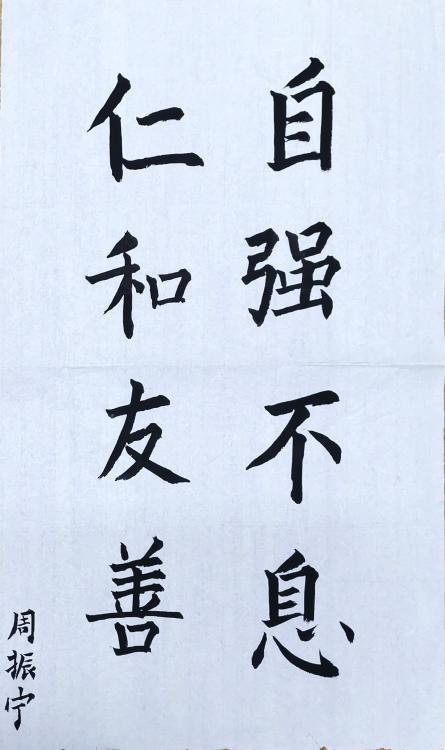 自强不息
仁和友善
周振宁